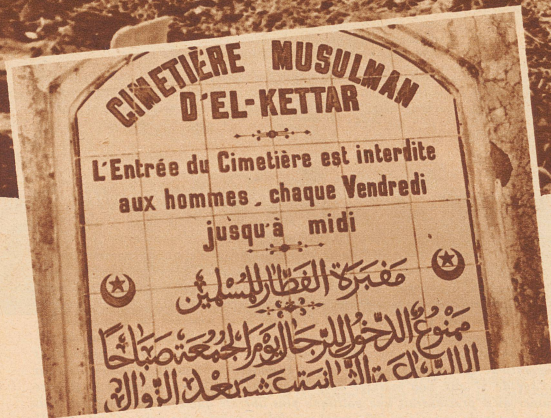 CIMETIÈRE MUSULMAN
D'EL-KETTAR
L'Entrée du Cimetière est interdite
aux hommes, chaque Vendredi
jusqu'à midi
مَقبَرَة القَطَّار للمُسْلمِين
مَمْنُوعٌ الدّخُولُ للرّجَال يَومَ الجُمُعَة صَبَاحًا
الى السَّاعَة الثَّانِيَة عَشَر بَعْدَ الزَّوَال